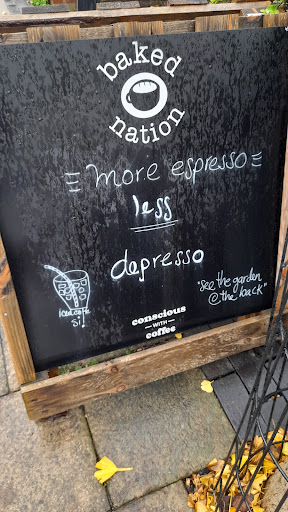 baked
nation
more espresso
less
depresso
Iced coffe
si!
"see the garden
@ the back"
conscious
WITH
coffee